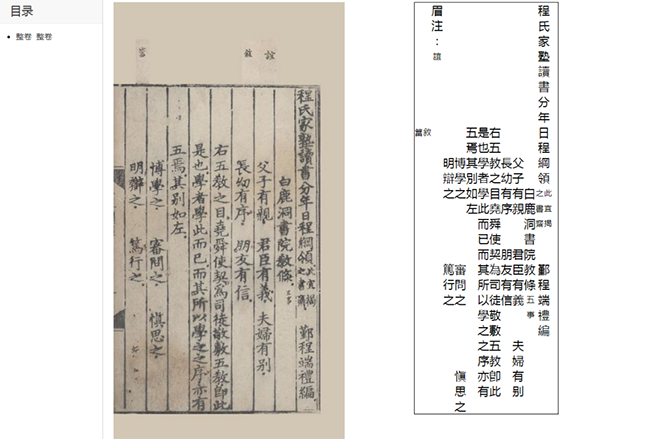 目录
整卷 整卷
誼
敘
程氏家塾讀書分年日程綱領 此宜揭之書齋 鄞程端禮編
白鹿洞書院教條 五事
父子有親。君臣有義。夫婦有別。
長幼有序。朋友有信。
右五教之目。堯舜使契爲司徒敬敷五教即此
是也。學者學此而已。而其所以學之之序亦有
五焉。其別如左。
博學之。審問之。愼思之。
明辯之。篤行之。
程氏家塾讀書分年日程綱領 此直揭之書齋 鄞程端禮編
白鹿洞書院教條 五事
父子有親 君臣有義 夫婦有別
長幼有序 朋友有信
右五教之目堯舜使契為司徒敬敷五教卽此
是也學者學此而已而其所以學之之序亦有
五焉其別如左
博學之 審問之 愼思之
明辯之 篤行之
眉注：誼
敘